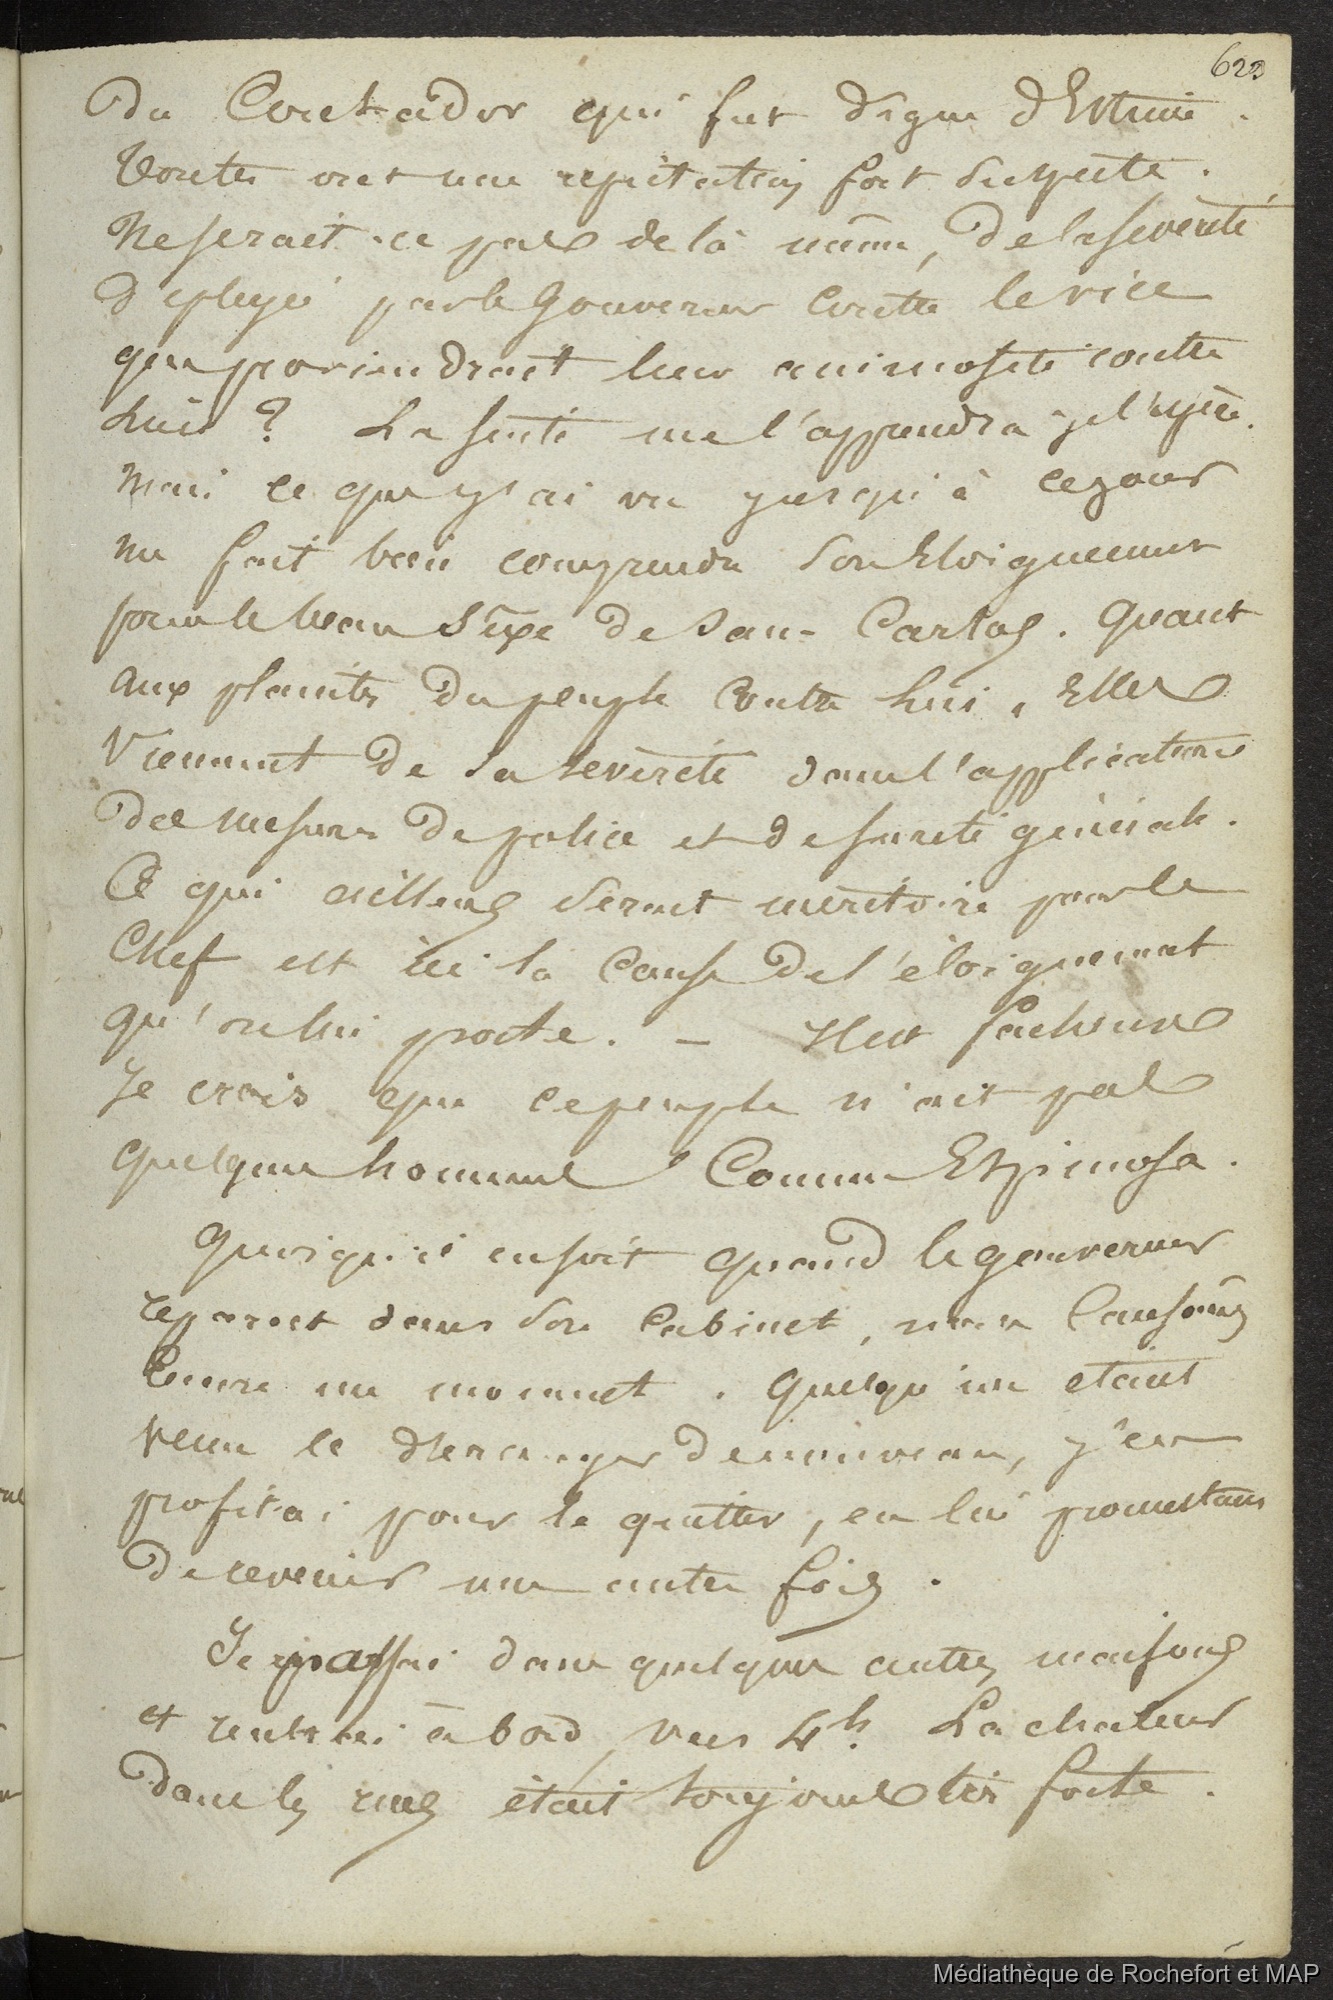 623
du Contador qui fut digne d'Estime.
Toutes ont une reputation fort suspecte.
Ne serait-ce pas de là même, de la sévèrité
deployé par le Gouverneur contre le vice
que proviendrait leur animosité contre
lui ? La suite me l'apprendra je l'espère.
Mais ce que j'ai vu jusqu'à ce jour
me fait bien comprendre son Eloignement
pour le beau Sexe de San-Carlos. Quant
aux plaintes du peuple contre lui, Elles
Viennent de sa sevèrité dans l'application
des mesures de police et de sureté générale.
Ce qui ailleurs serait méritoire pour le
Chef est ici la cause de l'éloignement
qu'on lui porte. — Il est facheux
Je crois que ce peuple n'ait pas
quelques hommes Comme Espinosa.
Quoiqu'il en soit quand le gouverneur
reparut dans son Cabinet, nous Causâmes
Encore un moment. Quelqu'un étant
venu le déranger de nouveau, j'en
profitai pour le quitter, en lui promettant
de revenir une autre fois.
Je passai dans quelques autres maisons
et rentrai à bord vers 4h. La chaleur
dans les rues était toujours très forte.
Médiathèque de Rochefort et MAP